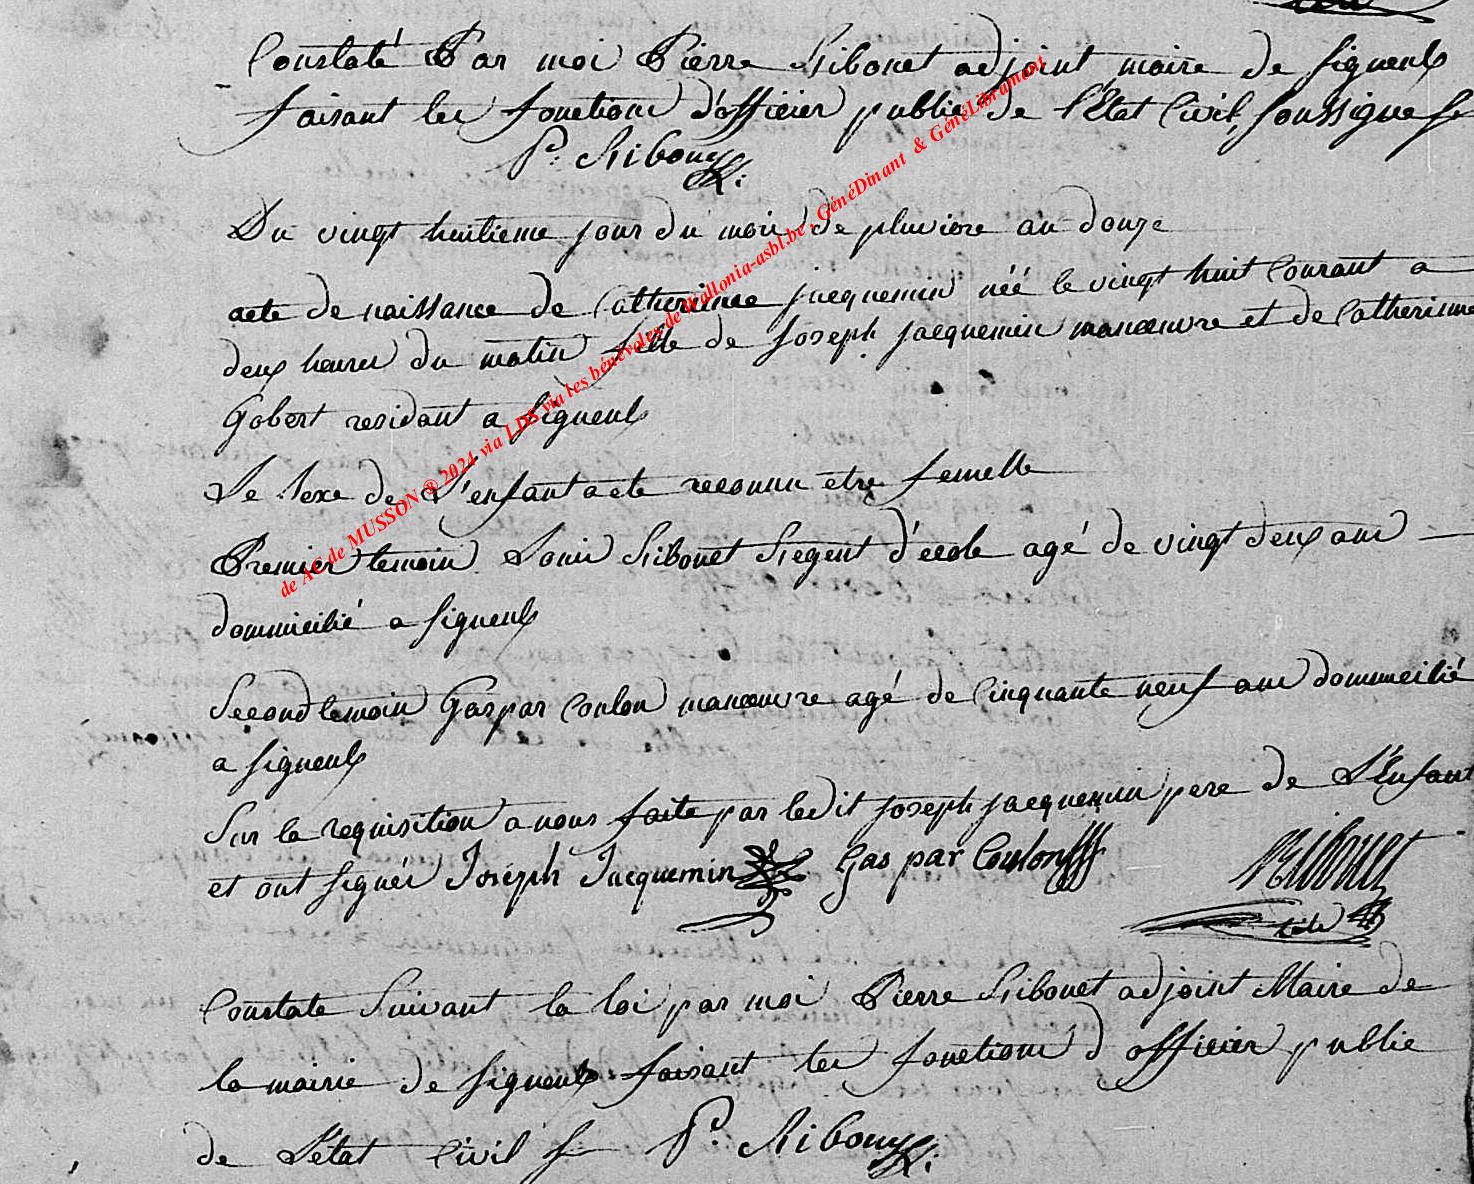 Constaté Par moi Pierre Ribonet adjoint maire de Signeulx
faisant les fonctions d'officier public de l'Etat Civil, soussigné
P. Ribonet
Du vingt huitieme jour du mois de pluviose an douze
acte de naissance de Catherinne jacquemin néé le vingt huit Courant a
deux heures du matin fille de Joseph jacquemin manœuvre et de Catherinne
Gobert residant a Signeulx
Le Sexe de L'enfant a ete reconnu etre femelle
Premier temoin Louis Ribonet Regent d'école agé de vingt deux ans
dommicilié a Signeulx
Second temoin Gaspar Coulon manœuvre agé de Cinquante neuf ans dommicilié
a Signeulx
Sur la requisition a nous faite par ledit joseph jacquemin pere de L'Enfant
et ont Signés Joseph Jacquemin Gas par Coulon Ribonet
Constate Suivant la loi par moi Pierre Ribonet adjoint Maire de
la mairie de Signeulx faisant les fonctions d officier public
de L'état Civil P. Ribonet
de AC de MUSSON ® 2024 via LDS via les bénévoles de Wallonia-asbl.be - GénéDinant & GénéLibramont